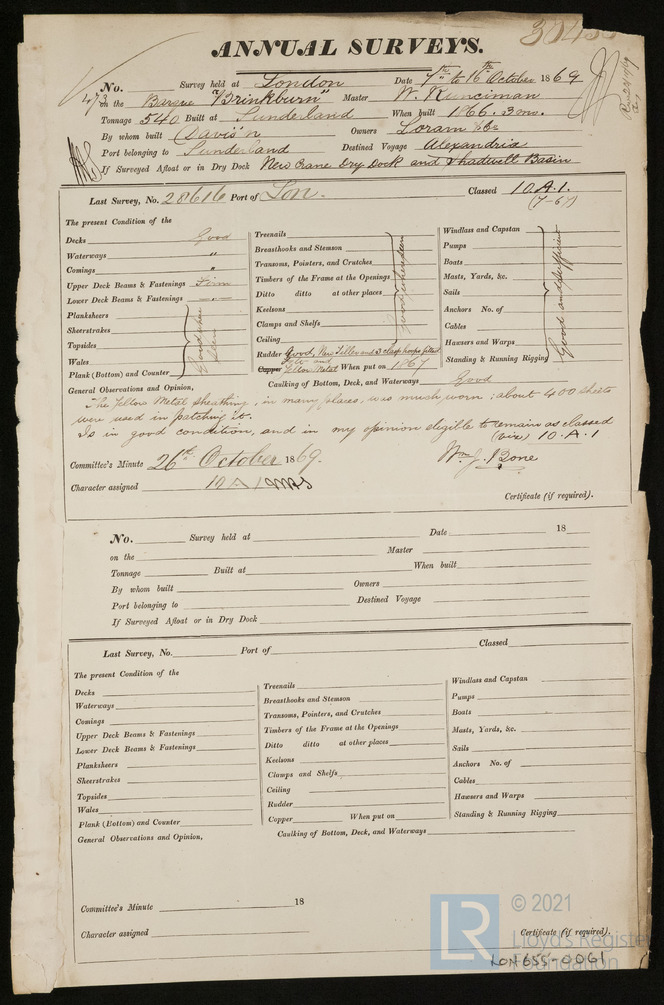 ANNUAL SURVEYS.
No. 473 Survey held at London Date 7th to 16th October 1869
on the Barque "Brinkburn" Master W. Runciman
Tonnage 540 Built at Sunderland When built 1866. 3 mo.
By whom built Davis'n Owners Loram & Co
Port belonging to Sunderland Destined Voyage Alexandria
If Surveyed Afloat or in Dry Dock New Crane Dry Dock and Shadwell Basin
Last Survey, No. 28616 Port of Lon. Classed 10.A.1.
(7-67)
The present Condition of the
Decks Good
Waterways "
Comings "
Upper Deck Beams & Fastenings Firm
Lower Deck Beams & Fastenings
Planksheers
Sheerstrakes
Topsides
Wales
Plank (Bottom) and Counter
Good where seen
Treenails
Breasthooks and Stemson
Transoms, Pointers, and Crutches
Timbers of the Frame at the Openings
Ditto ditto at other places
Keelsons
Clamps and Shelfs
Ceiling
Good where seen
Rudder Good, New Tiller and 3 clasp hoops fitted
Copper Yellow Metal When put on 1867
Windlass and Capstan
Pumps
Boats
Masts, Yards, &c.
Sails
Anchors No. of
Cables
Hawsers and Warps
Standing & Running Rigging
Good and sufficient
General Observations and Opinion, Caulking of Bottom, Deck, and Waterways Good
The Yellow Metal sheathing, in many places, was much worn; about 400 sheets
were used in patching it.
Is in good condition, and in my opinion eligible to remain as classed
(vizt) 10.A.1
Committee's Minute 26th October 1869. Wm. J. Bone
Character assigned 10 A 1
Certificate (if required).
No. Survey held at Date 18
on the Master
Tonnage Built at When built
By whom built Owners
Port belonging to Destined Voyage
If Surveyed Afloat or in Dry Dock
Last Survey, No. Port of Classed
The present Condition of the
Decks
Waterways
Comings
Upper Deck Beams & Fastenings
Lower Deck Beams & Fastenings
Planksheers
Sheerstrakes
Topsides
Wales
Plank (Bottom) and Counter
Treenails
Breasthooks and Stemson
Transoms, Pointers, and Crutches
Timbers of the Frame at the Openings
Ditto ditto at other places
Keelsons
Clamps and Shelfs
Ceiling
Rudder
Copper When put on
Windlass and Capstan
Pumps
Boats
Masts, Yards, &c.
Sails
Anchors No. of
Cables
Hawsers and Warps
Standing & Running Rigging
General Observations and Opinion, Caulking of Bottom, Deck, and Waterways
Committee's Minute 18
Character assigned
Certificate (if required).
LR
© 2021
Lloyd's Register
Foundation
LON655-0061